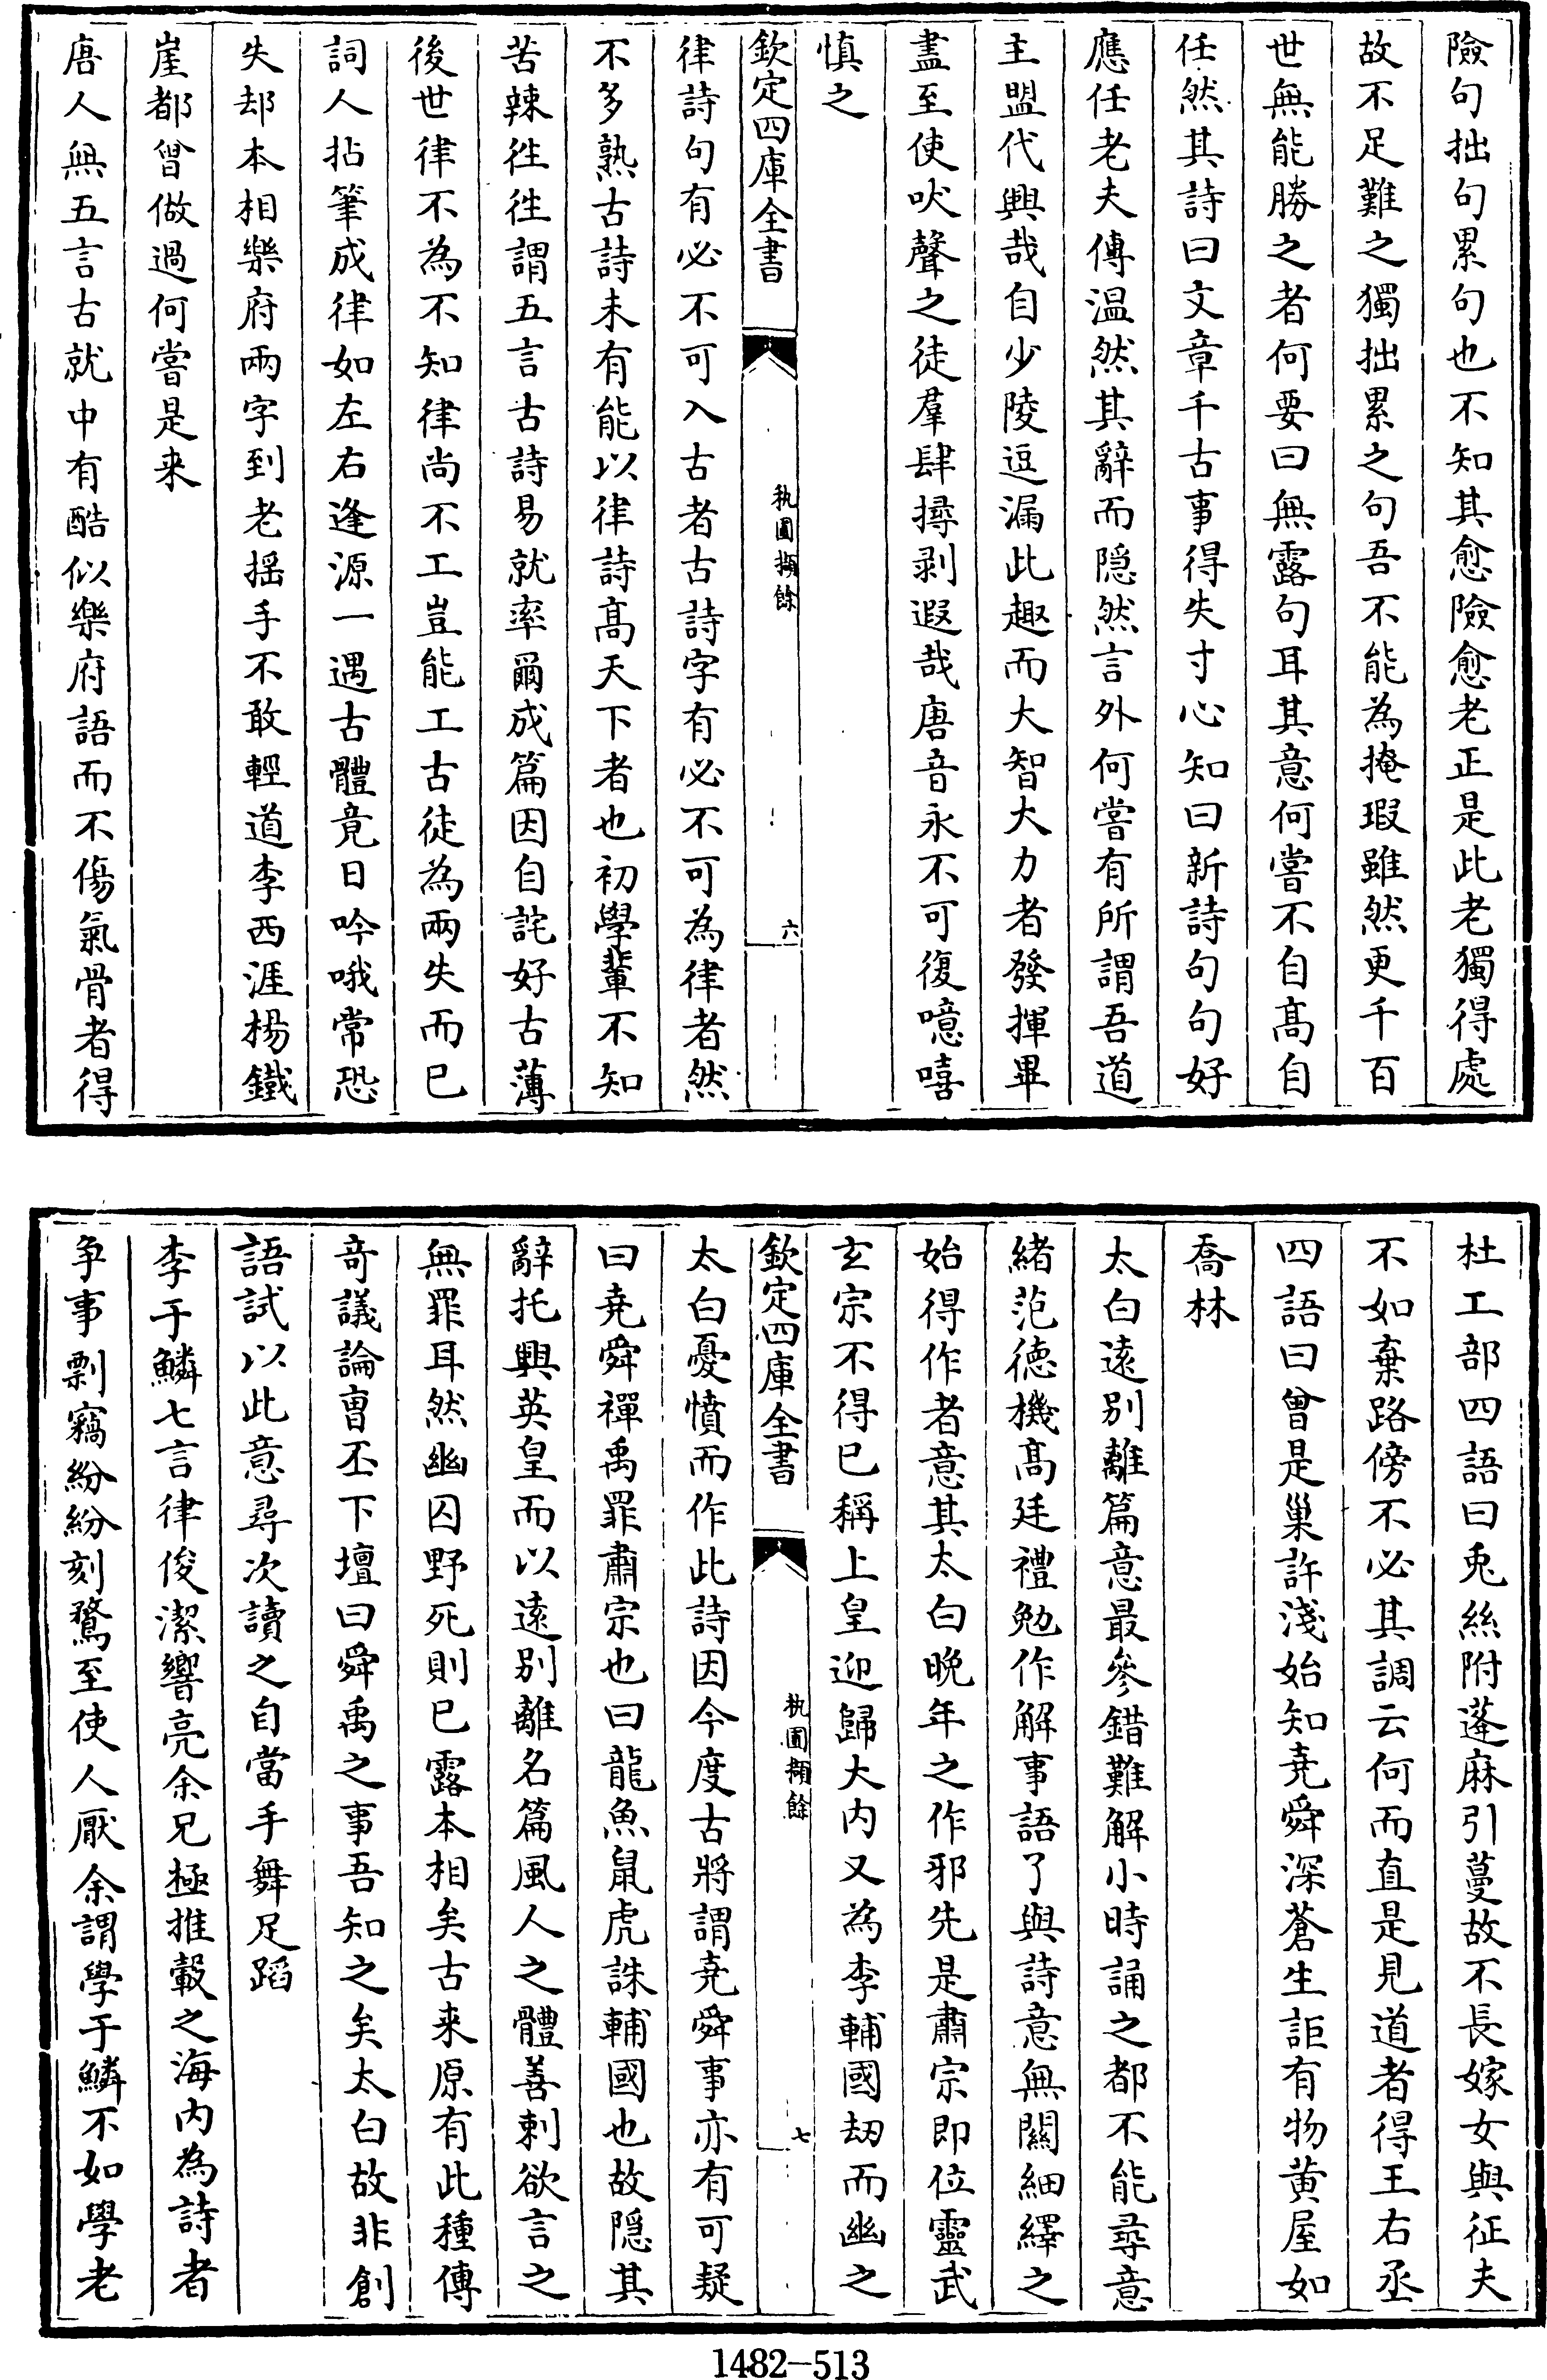 險句拙句累句也不知其愈險愈老正是此老獨得處
故不足難之獨拙累之句吾不能為掩瑕雖然更千百
世無能勝之者何要曰無露句耳其意何嘗不自高自
任然其詩曰文章千古事得失寸心知曰新詩句句好
應任老夫傳温然其辭而隠然言外何嘗有所謂吾道
主盟代興哉自少陵逗漏此趣而大智大力者發揮畢
盡至使吠聲之徒羣肆撏剥遐哉唐音永不可復噫嘻
慎之
欽定四庫全書
秇圃擷餘
六
律詩句有必不可入古者古詩字有必不可為律者然
不多熟古詩未有能以律詩高天下者也初學輩不知
苦辣徃徃謂五言古詩易就率爾成篇因自詫好古薄
後世律不為不知律尚不工豈能工古徒為兩失而已
詞人拈筆成律如左右逢源一遇古體竟日吟哦常恐
失却本相樂府兩字到老摇手不敢輕道李西涯楊鐵
崖都曾做過何嘗是来
唐人無五言古就中有酷似樂府語而不傷氣骨者得
杜工部四語曰兎絲附蓬麻引蔓故不長嫁女與征夫
不如棄路傍不必其調云何而直是見道者得王右丞
四語曰曾是巢許淺始知堯舜深蒼生詎有物黄屋如
喬林
太白遠别離篇意最參錯難解小時誦之都不能尋意
緒范徳機高廷禮勉作解事語了與詩意無關細繹之
始得作者意其太白晚年之作邪先是肅宗即位靈武
玄宗不得已稱上皇迎歸大内又為李輔國刼而幽之
欽定四庫全書
秇圃擷餘
七
太白憂憤而作此詩因今度古將謂堯舜事亦有可疑
曰堯舜禪禹罪肅宗也曰龍魚鼠虎誅輔國也故隠其
辭托興英皇而以遠别離名篇風人之體善刺欲言之
無罪耳然幽囚野死則已露本相矣古来原有此種傳
竒議論曺丕下壇曰舜禹之事吾知之矣太白故非創
語試以此意尋次讀之自當手舞足蹈
李于鱗七言律俊潔響亮余兄極推轂之海内為詩者
争事剽竊紛紛刻鶩至使人厭余謂學于鱗不如學老
1482-513